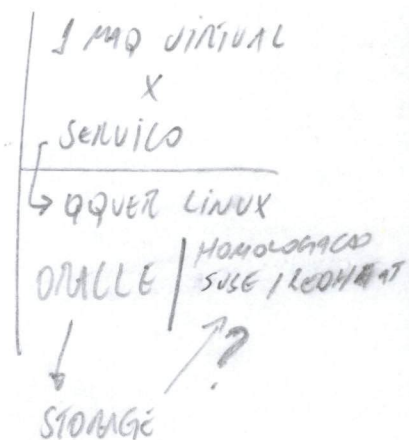 1 MAQ VIRTUAL
X
SERVICO
QQUER LINUX
ORACLE
HOMOLOGACAO
SUSE / REDHAT
?
STORAGE